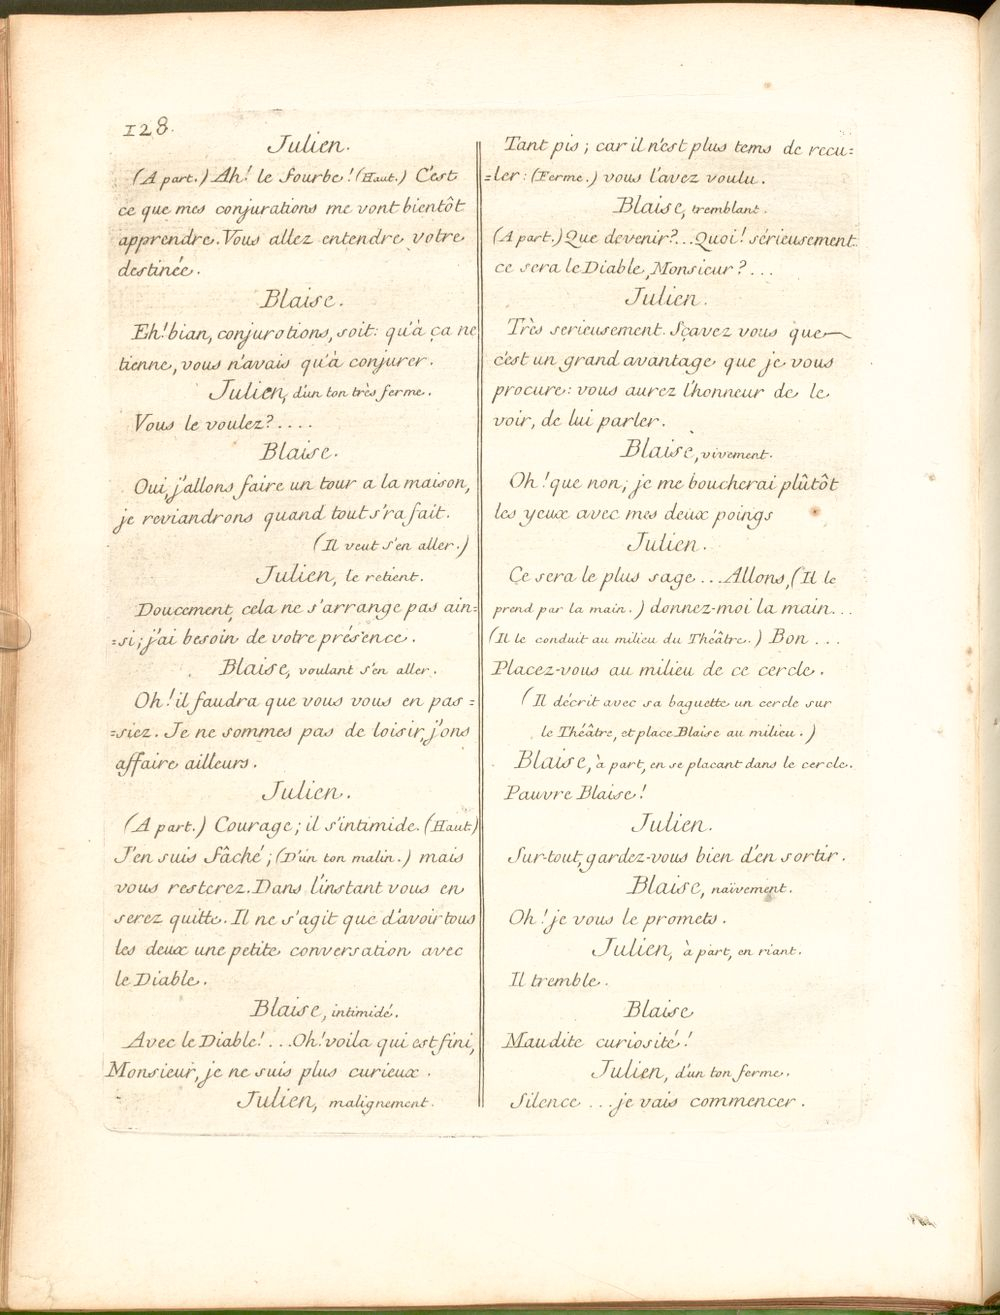 128.
Julien.
(A part.) Ah! le fourbe! (Haut.) C'est
ce que mes conjurations me vont bientôt
apprendre. Vous allez entendre votre
destinée.
Blaise.
Eh! bian, conjurotions, soit: qu'à ça ne
tienne, vous n'avais qu'à conjurer.
Julien, d'un ton très ferme.
Vous le voulez? . . . .
Blaise.
Oui, j'allons faire un tour a la maison,
je reviandrons quand tout s'ra fait.
(Il veut s'en aller.)
Julien, le retient.
Doucement, cela ne s'arrange pas ain=
=si; j'ai besoin de votre présence.
Blaise, voulant s'en aller.
Oh! il faudra que vous vous en pas=
=siez. Je ne sommes pas de loisir, j'ons
affaire ailleurs.
Julien.
(A part.) Courage; il s'intimide. (Haut)
J'en suis fâché; (D'un ton malin.) mais
vous resterez. Dans l'instant vous en
serez quitte. Il ne s'agit que d'avoir tous
les deux une petite conversation avec
le Diable.
Blaise, intimidé.
Avec le Diable! . . . Oh! voila qui est fini,
Monsieur, je ne suis plus curieux.
Julien, malignement.
Tant pis; car il n'est plus tems de recu=
=ler: (Ferme.) vous l'avez voulu.
Blaise, tremblant.
(A part.) Que devenir? . . . Quoi! sérieusement
ce sera le Diable, Monsieur? . . .
Julien.
Très serieusement. Sçavez vous que
c'est un grand avantage que je vous
procure: vous aurez l'honneur de le
voir, de lui parler.
Blaise, vivement.
Oh! que non; je me boucherai plûtôt
les yeux avec mes deux poings
Julien.
Ce sera le plus sage . . . Allons, (Il le
prend par la main.) donnez-moi la main . . .
(Il le conduit au milieu du Théâtre.) Bon . . .
Placez-vous au milieu de ce cercle.
(Il décrit avec sa baguette un cercle sur
le Théâtre, et place Blaise au milieu.)
Blaise, à part, en se placant dans le cercle.
Pauvre Blaise!
Julien.
Sur-tout, gardez-vous bien d'en sortir.
Blaise, naïvement.
Oh! je vous le promets.
Julien, à part, en riant.
Il tremble.
Blaise
Maudite curiosité!
Julien, d'un ton ferme.
Silence . . . je vais commencer.